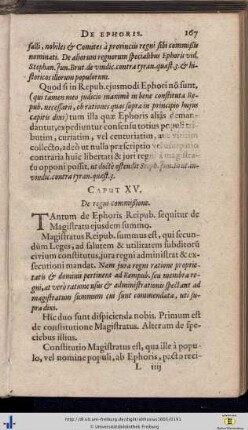 DE EPHORIS. 167
salli, nobiles & Comites à provinciis regni sibi commissis
nominati. De aliorum regnorum specialibus Ephoris vid.
Stephan. Jun. Brut. de vindic. contra tyran. quæst. 3. & hi-
storicos illorum populorum.
Quod si in Repub. ejusmodi Ephori nõ sunt,
(qui tamen meo judicio maximè in bene constituta Re-
pub. necessarii, ob rationes quas supra in principio hujus
capitis dixi) tum illa quæ Ephoris aliàs deman-
dantur, expediuntur consensu totius populi tri-
butim, curiatim, vel centuriatim, aut viritim
collecto, adeò ut nulla præscriptio vel usurpatio
contraria huic libertati & juri regni à magistra-
tu opponi possit, ut doctè ostendit Steph. Jun. Brut. in
vindic. contra tyran. quæst. 3.
CAPUT XV.
De regno commissione.
TAntum de Ephoris Reipub. sequitur de
Magistratu ejusdem summo.
Magistratus Reipub. summus est, qui secun-
dùm Leges, ad salutem & utilitatem subditorũ
civium constitutus, jura regni administrat & ex-
secutioni mandat. Nam jura regni ratione proprie-
tatis & dominii pertinent ad Rempub. seu membra re-
gni, at verò ratione usus & administrationis spectant ad
magistratum summum cui sunt commendatæ, uti su-
pra dixi.
Hic duo sunt dispicienda nobis. Primum est
de constitutione Magistratus. Alteram de spe-
ciebus illius.
Constitutio Magistratus est, qua ille à popu-
lo, vel nomine populi, ab Ephoris, pacto reci-
L iiij
© Universitätsbibliothek Freiburg